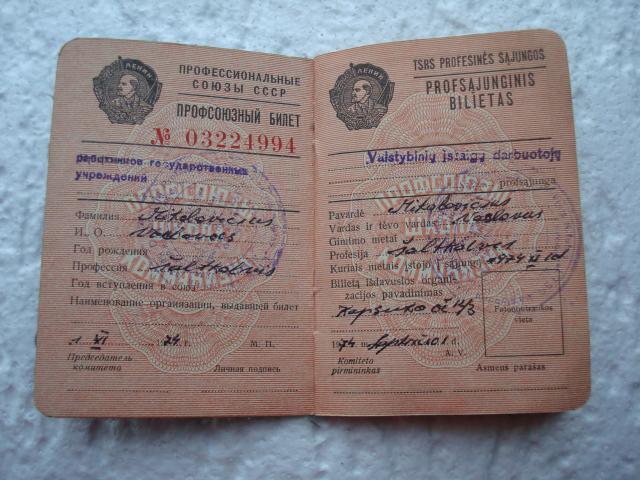 ЛЕНИН
ПРОФЕССИОНАЛЬНЫЕ
СОЮЗЫ СССР
ПРОФСОЮЗНЫЙ БИЛЕТ
№ 03224994
работников государственных
учреждений
Фамилия
И., О.
Год рождения
Профессия Šaltkalvis
Год вступления в союз
Наименование организации, выдавшей билет
1 VI 1974 г. М. П.
Председатель
комитета
Личная подпись
ЛЕНИН
TSRS PROFESINĖS SĄJUNGOS
PROFSĄJUNGINIS
BILIETAS
Valstybinių įstaigų darbuotojų
profsąjunga
Pavardė
Vardas ir tėvo vardas
Gimimo metai
Profesija Šaltkalvis
Kuriais metais įstojo į sąjungą 1974
Bilietą išdavusios organi-
zacijos pavadinimas
Fotonuotraukos
vieta
1974 m. d.
Komiteto
pirmininkas
A. V.
Asmens parašas